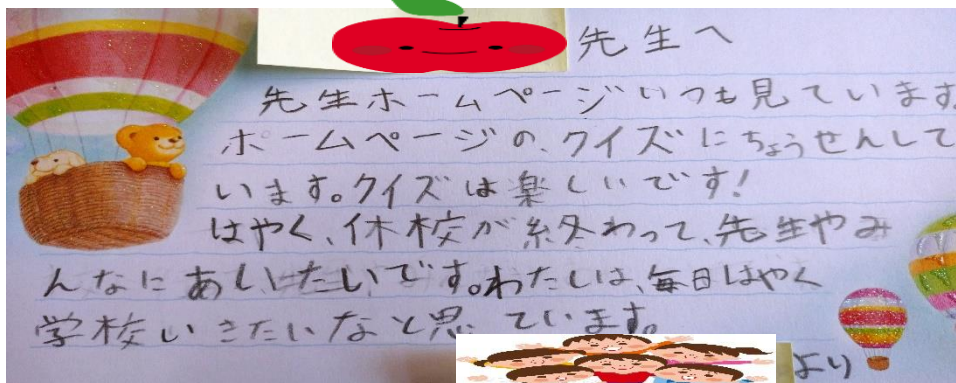 先生へ
先生ホームページいつも見ています。
ホームページの、クイズにちょうせんして
います。クイズは楽しいです!
はやく、休校が終わって、先生やみ
んなにあいたいです。わたしは、毎日はやく
学校いきたいなと思っています。
より